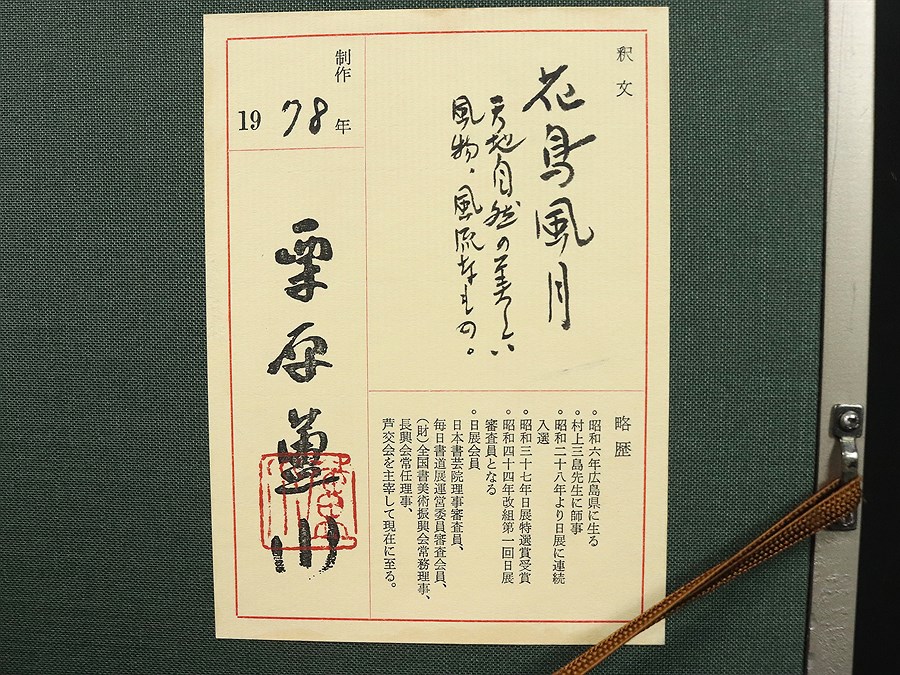 釈文
花鳥風月
天地自然の美しい
風物、風流なもの。
略歴
◦昭和六年広島県に生る
◦村上三島先生に師事
◦昭和二十八年より日展に連続
入選
◦昭和三十七年日展特選賞受賞
◦昭和四十四年改組第一回日展
審査員となる
◦日展会員
日本書芸院理事審査員、
毎日書道展運営委員審査会員、
(財)全国書美術振興会常務理事、
長興会常任理事、
芦交会を主宰して現在に至る。
制作
1978年
栗原蘆水